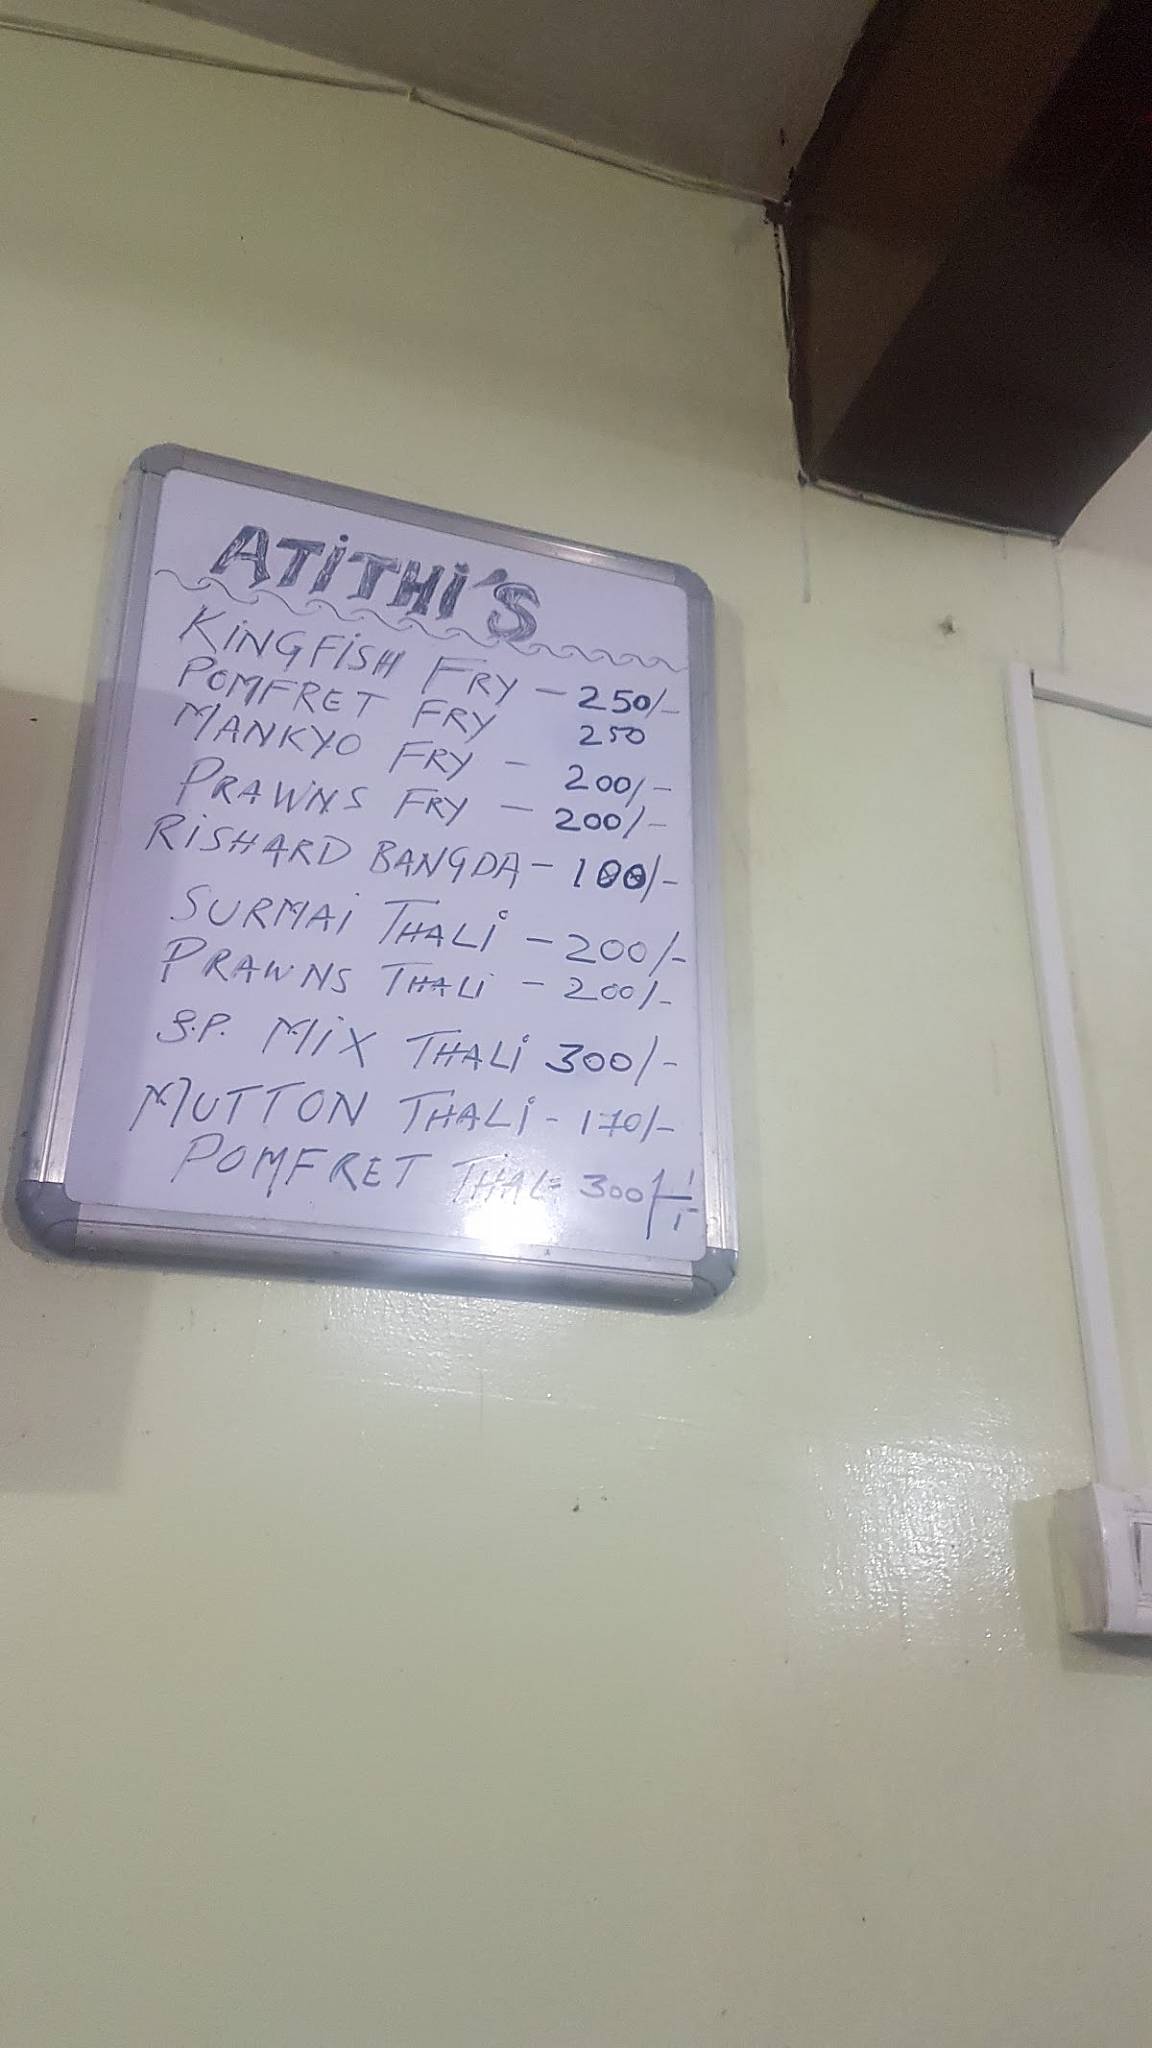 ATITHI'S
KINGFISH FRY - 250/-
POMFRET FRY 250
MANKYO FRY - 200/-
PRAWNS FRY - 200/-
RISHARD BANGDA - 100/-
SURMAI THALI - 200/-
PRAWNS THALI - 200/-
S.P. MIX THALI 300/-
MUTTON THALI - 170/-
POMFRET THALI 300/-